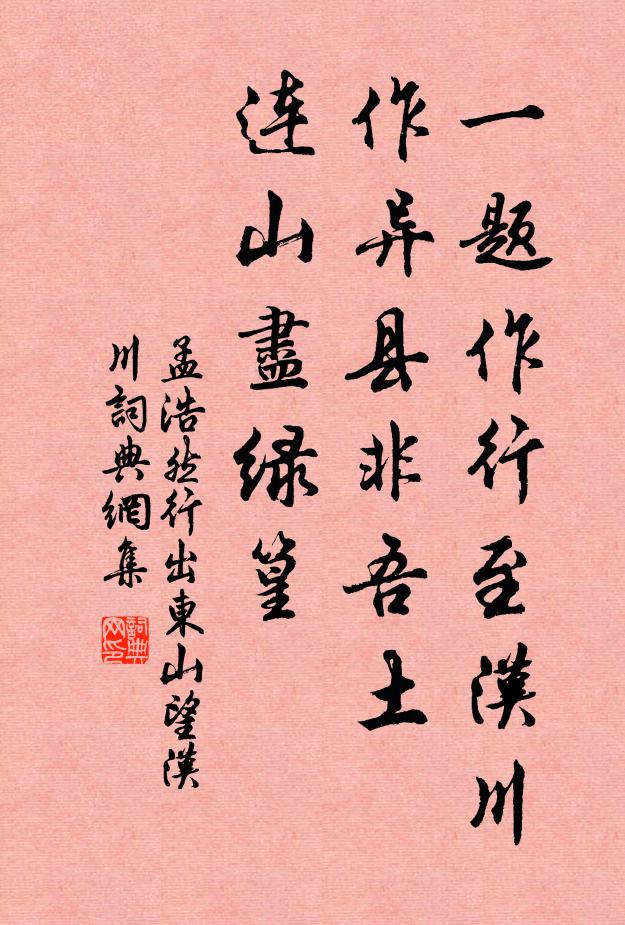 一题作行至漢川
作异县非吾土
连山盡绿篁
孟浩然行出東山望漢
川詞典網集
詞典
网印